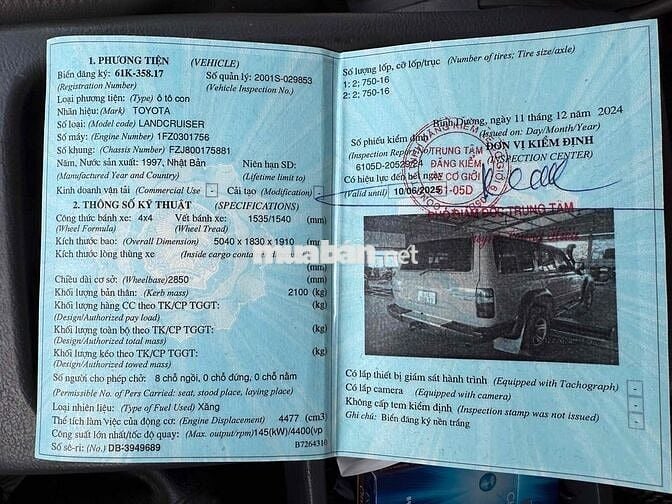 1. PHƯƠNG TIỆN (VEHICLE)
Biển đăng ký: 61K-358.17 Số quản lý: 2001S-029853
(Registration Number) (Vehicle Inspection No.)
Loại phương tiện: (Type) ô tô con
Nhãn hiệu: (Mark) TOYOTA
Số loại: (Model code) LANDCRUISER
Số máy: (Engine Number) 1FZ0301756
Số khung: (Chassis Number) FZJ800175881
Năm, Nước sản xuất: 1997, Nhật Bản Niên hạn SD:
(Manufactured Year and Country) (Lifetime limit to)
Kinh doanh vận tải (Commercial Use) - Cải tạo (Modification) -
2. THÔNG SỐ KỸ THUẬT (SPECIFICATIONS)
Công thức bánh xe: 4x4 Vết bánh xe: 1535/1540 (mm)
(Wheel Formula) (Wheel Tread)
Kích thước bao: (Overall Dimension) 5040 x 1830 x 1910 (mm)
Kích thước lòng thùng xe (Inside cargo container (mm)
(mm)
Chiều dài cơ sở: (Wheelbase) 2850 (mm)
Khối lượng bản thân: (Kerb mass) 2100 (kg)
Khối lượng hàng CC theo TK/CP TGGT: (kg)
(Design/Authorized pay load)
Khối lượng toàn bộ theo TK/CP TGGT: (kg)
(Design/Authorized total mass)
Khối lượng kéo theo TK/CP TGGT: (kg)
(Design/Authorized towed mass)
Số người cho phép chở: 8 chỗ ngồi, 0 chỗ đứng, 0 chỗ nằm
(Permissible No. of Pers Carried: seat, stood place, laying place)
Loại nhiên liệu: (Type of Fuel Used) Xăng
Thể tích làm việc của động cơ: (Engine Displacement) 4477 (cm3)
Công suất lớn nhất/tốc độ quay: (Max. output/rpm) 145(kW)/4400(vph)
Số sê-ri: (No.) DB-3949689 B7264310
Số lượng lốp, cỡ lốp/trục (Number of tires; Tire size/axle)
1: 2; 750-16
2: 2; 750-16
Bình Dương, ngày 11 tháng 12 năm 2024
(Issued on: Day/Month/Year)
Số phiếu kiểm định ĐƠN VỊ KIỂM ĐỊNH
(Inspection Report No) (INSPECTION CENTER)
6105D-20529/24
Có hiệu lực đến hết ngày
(Valid until) 10/06/2025
TRUNG TÂM
ĐĂNG KIỂM
XE CƠ GIỚI
61-05D
PHÓ GIÁM ĐỐC TRUNG TÂM
muaban.net
Có lắp thiết bị giám sát hành trình (Equipped with Tachograph) -
Có lắp camera (Equipped with camera) -
Không cấp tem kiểm định (Inspection stamp was not issued) -
Ghi chú: Biển đăng ký nền trắng